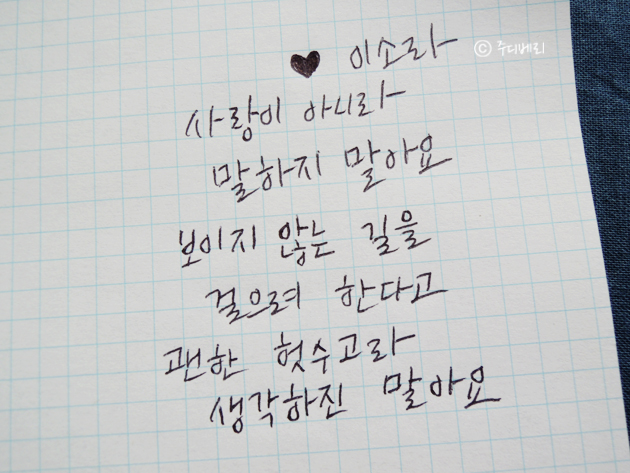 ♥ 이소라
ⓒ 주디베리
사랑이 아니라
말하지 말아요
보이지 않는 길을
걸으려 한다고
괜한 헛수고라
생각하진 말아요